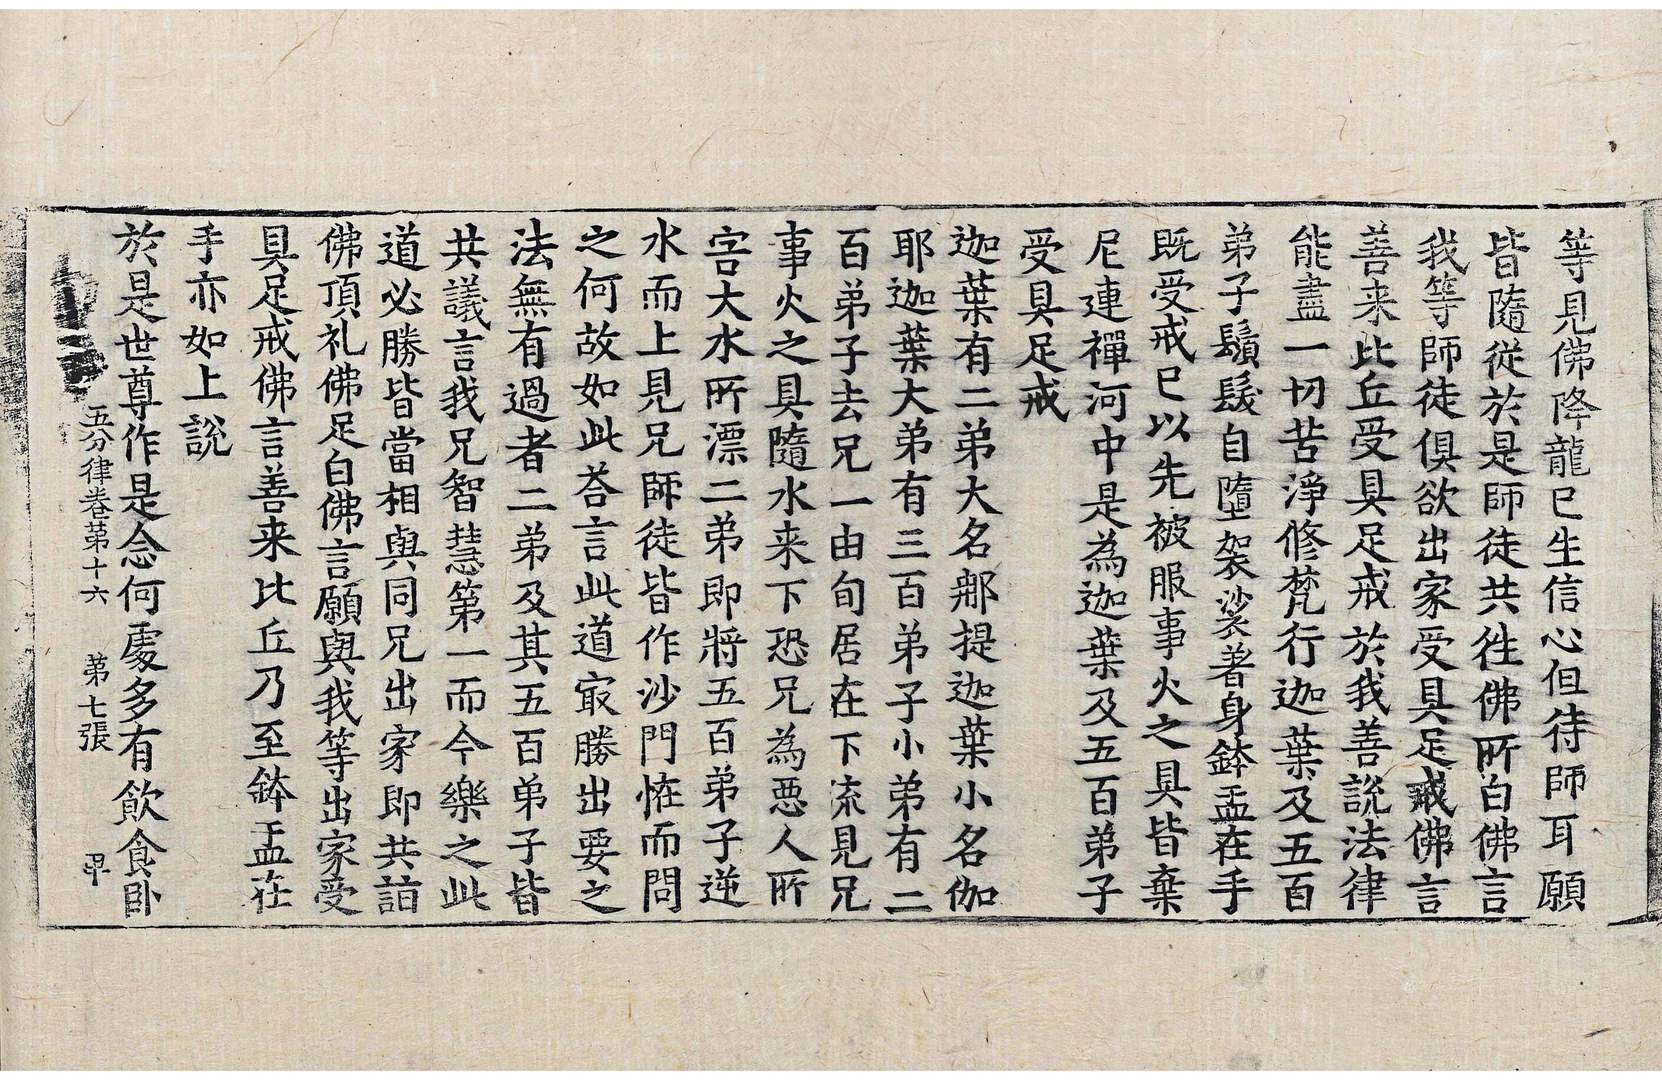 等見佛降龍已生信心但待師耳願
皆隨從於是師徒共往佛所白佛言
我等師徒俱欲出家受具足戒佛言
善来比丘受具足戒於我善說法律
能盡一切苦淨修梵行迦葉及五百
弟子鬚髮自墮袈裟著身鉢盂在手
既受戒已以先被服事火之具皆棄
尼連禪河中是為迦葉及五百弟子
受具足戒
迦葉有二弟大名郍提迦葉小名伽
耶迦葉大弟有三百弟子小弟有二
百弟子去兄一由旬居在下流見兄
事火之具隨水来下恐兄為惡人所
害大水所漂二弟即將五百弟子逆
水而上見兄師徒皆作沙門恠而問
之何故如此荅言此道冣勝出要之
法無有過者二弟及其五百弟子皆
共議言我兄智慧第一而今樂之此
道必勝皆當相與同兄出家即共詣
佛頂礼佛足白佛言願與我等出家受
具足戒佛言善来比丘乃至鉢盂在
手亦如上說
於是世尊作是念何處多有飲食卧
五分律卷第十六 第七張